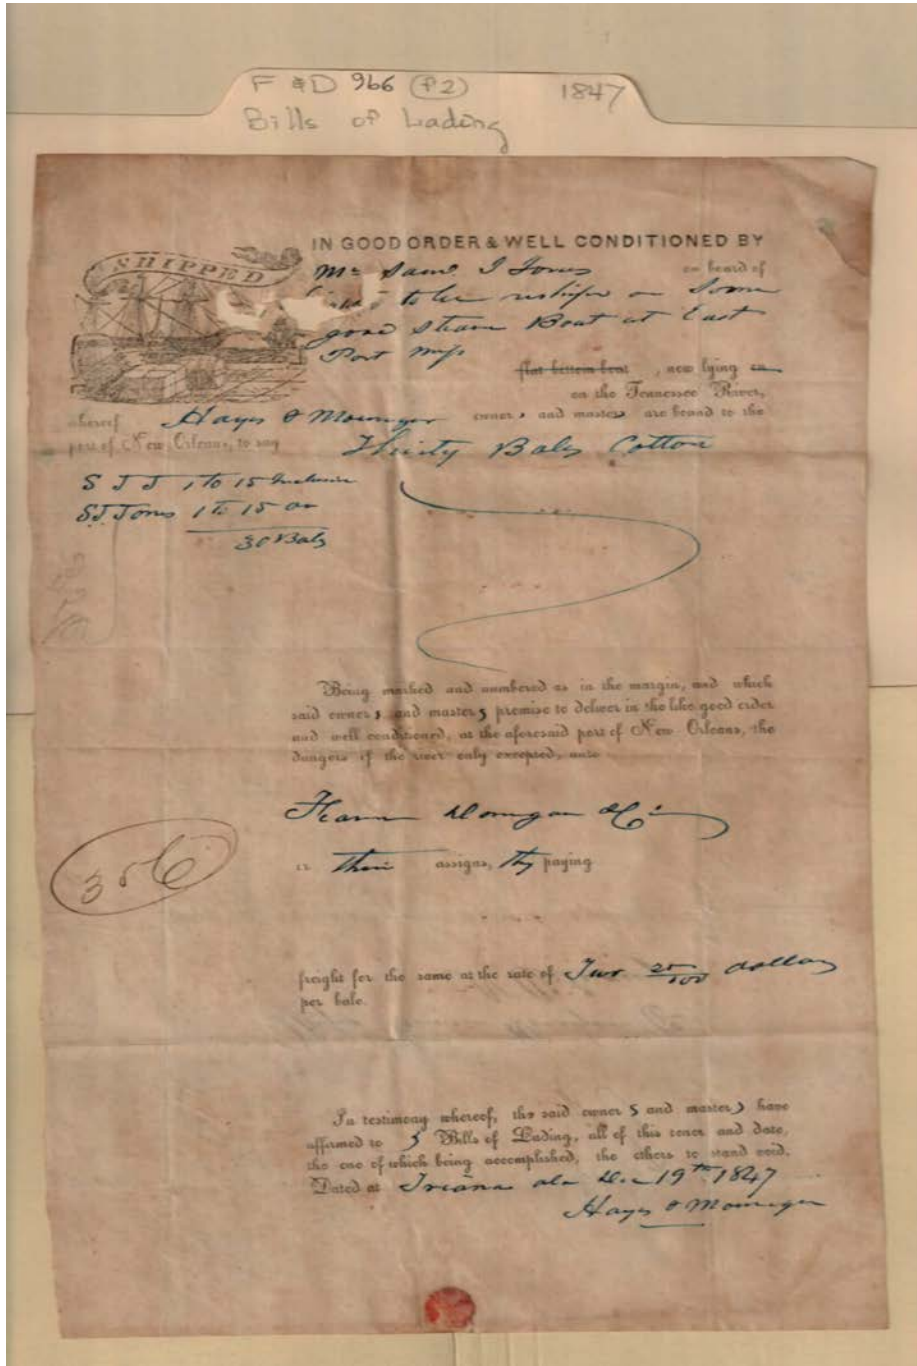 F & D 966 (f2) 1847
Bills of Lading
SHIPPED
IN GOOD ORDER & WELL CONDITIONED BY
Mr Saml J Jones on board of
to be reshipd on Some
good Steam Boat at East
Port Miss
flat bottom boat , now lying on
on the Tennessee River,
whereof Hayes & owners and masters are bound to the
port of New Orleans, to say Thirty Bales Cotton
S J J 1 to 15 Inclusive
S.J. Jones 1 to 15 do
30 Bals
Being marked and numbered as in the margin, and which
said owners and masters promise to deliver in the like good order
and well conditioned, at the aforesaid port of New Orleans, the
dangers of the river only excepted, unto
Fearn Donegan & Co
or their assigns, they paying
freight for the same at the rate of Two 25/100 dollars
per bale.
356
In testimony whereof, the said owner s and master s have
affirmed to 3 Bills of Lading, all of this tenor and date,
the one of which being accomplished, the others to stand void.
Dated at Triana ala Dec 19th 1847
Hayes &